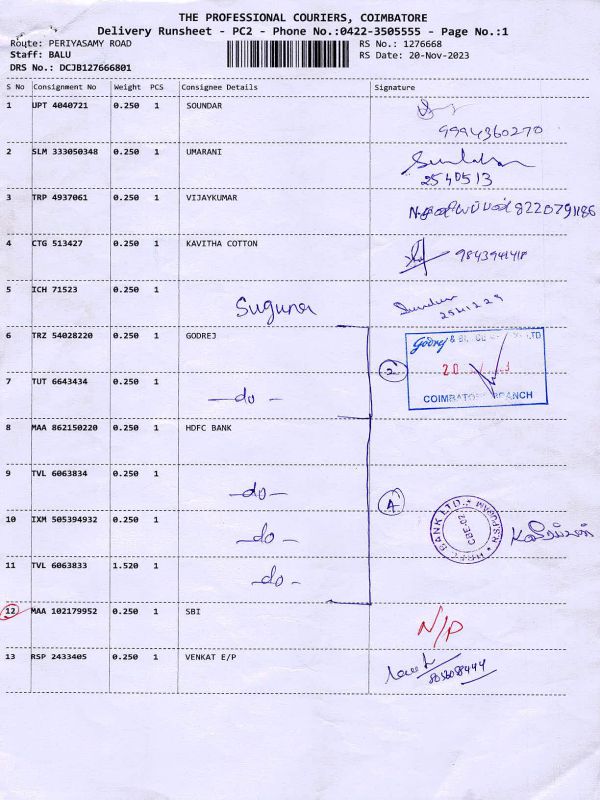 THE PROFESSIONAL COURIERS, COIMBATORE
Delivery Runsheet - PC2 - Phone No.:0422-3505555 - Page No.:1
Route: PERIYASAMY ROAD RS No.: 1276668
Staff: BALU RS Date: 20-Nov-2023
DRS No.: DCJB127666801
S No Consignment No Weight PCS Consignee Details Signature
1 UPT 4040721 0.250 1 SOUNDAR
9994360270
2 SLM 333050348 0.250 1 UMARANI
2540513
3 TRP 4937061 0.250 1 VIJAYKUMAR 8220791186
4 CTG 513427 0.250 1 KAVITHA COTTON 9843941418
5 ICH 71523 0.250 1
Suguna
6 TRZ 54028220 0.250 1 GODREJ
Godrej & LTD
2
7 TUT 6643434 0.250 1
-do-
COIMBATORE BRANCH
8 MAA 862150220 0.250 1 HDFC BANK
9 TVL 6063834 0.250 1
-do-
4
HDFC BANK LTD. * R.S.PURAM *
CBE-02
10 IXM 505394932 0.250 1
-do-
11 TVL 6063833 1.520 1
-do-
12 MAA 102179952 0.250 1 SBI
N/P
13 RSP 2433405 0.250 1 VENKAT E/P